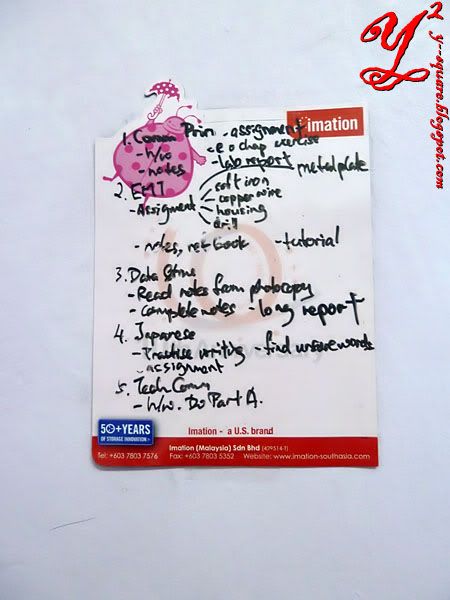 Y²
y--square.blogspot.com
imation
1. Comm Prin - assignment
- e o chap exercise
- h/w - lab report metal plate
- notes
2. EMT soft iron
- Assigment - copper wire
- housing
drill
- notes, ref book - tutorial
3. Data Strc
- Read notes from photocopy
- complete notes - long report
4. Japanese
- Practise writing - find unsure words
- assignment
5. Tech Comm
- h/w. Do Part A.
50+YEARS
OF STORAGE INNOVATION
Imation - a U.S. brand
Imation (Malaysia) Sdn Bhd (429514-T)
Tel: +603 7803 7576 Fax: +603 7803 5352 Website: www.imation-southasia.com